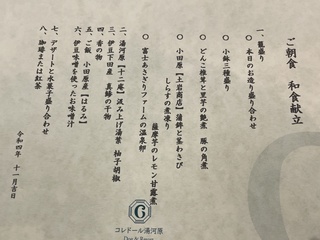 ご朝食 和食献立
一、籠盛り
○ 本日のお造り盛り合わせ
○ 小鉢三種盛り
○ どんこ椎茸と里芋の艶煮 豚の角煮
○ 小田原【土岩商店】蒲鉾と茎わさび
しらすの煮凍り
薩摩芋のレモン甘露煮
○ 富士あさぎりファームの温泉卵
二、湯河原【十二庵】汲み上げ湯葉 柚子胡椒
三、伊豆下田産 真鯵の干物
四、香の物
五、ご飯 小田原産【はるみ】
六、伊豆味噌を使ったお味噌汁
七、デザートと水菓子盛り合わせ
八、珈琲または紅茶
令和四年 十一月吉日
G
コレドール湯河原
Dog & Resort